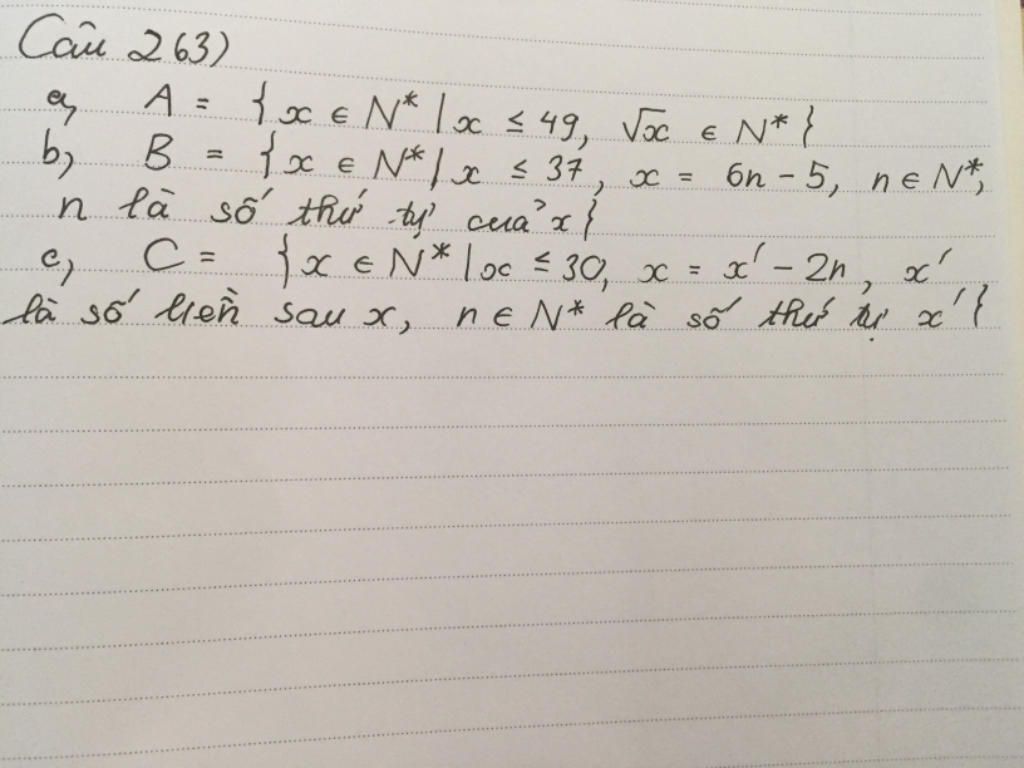 Câu 263)
a, A = { x ∈ N* | x ≤ 49, √x ∈ N* }
b, B = { x ∈ N* | x ≤ 37, x = 6n - 5, n ∈ N*,
n là số thứ tự của x }
c, C = { x ∈ N* | x ≤ 30, x = x' - 2n, x'
là số liền sau x, n ∈ N* là số thứ tự x' }